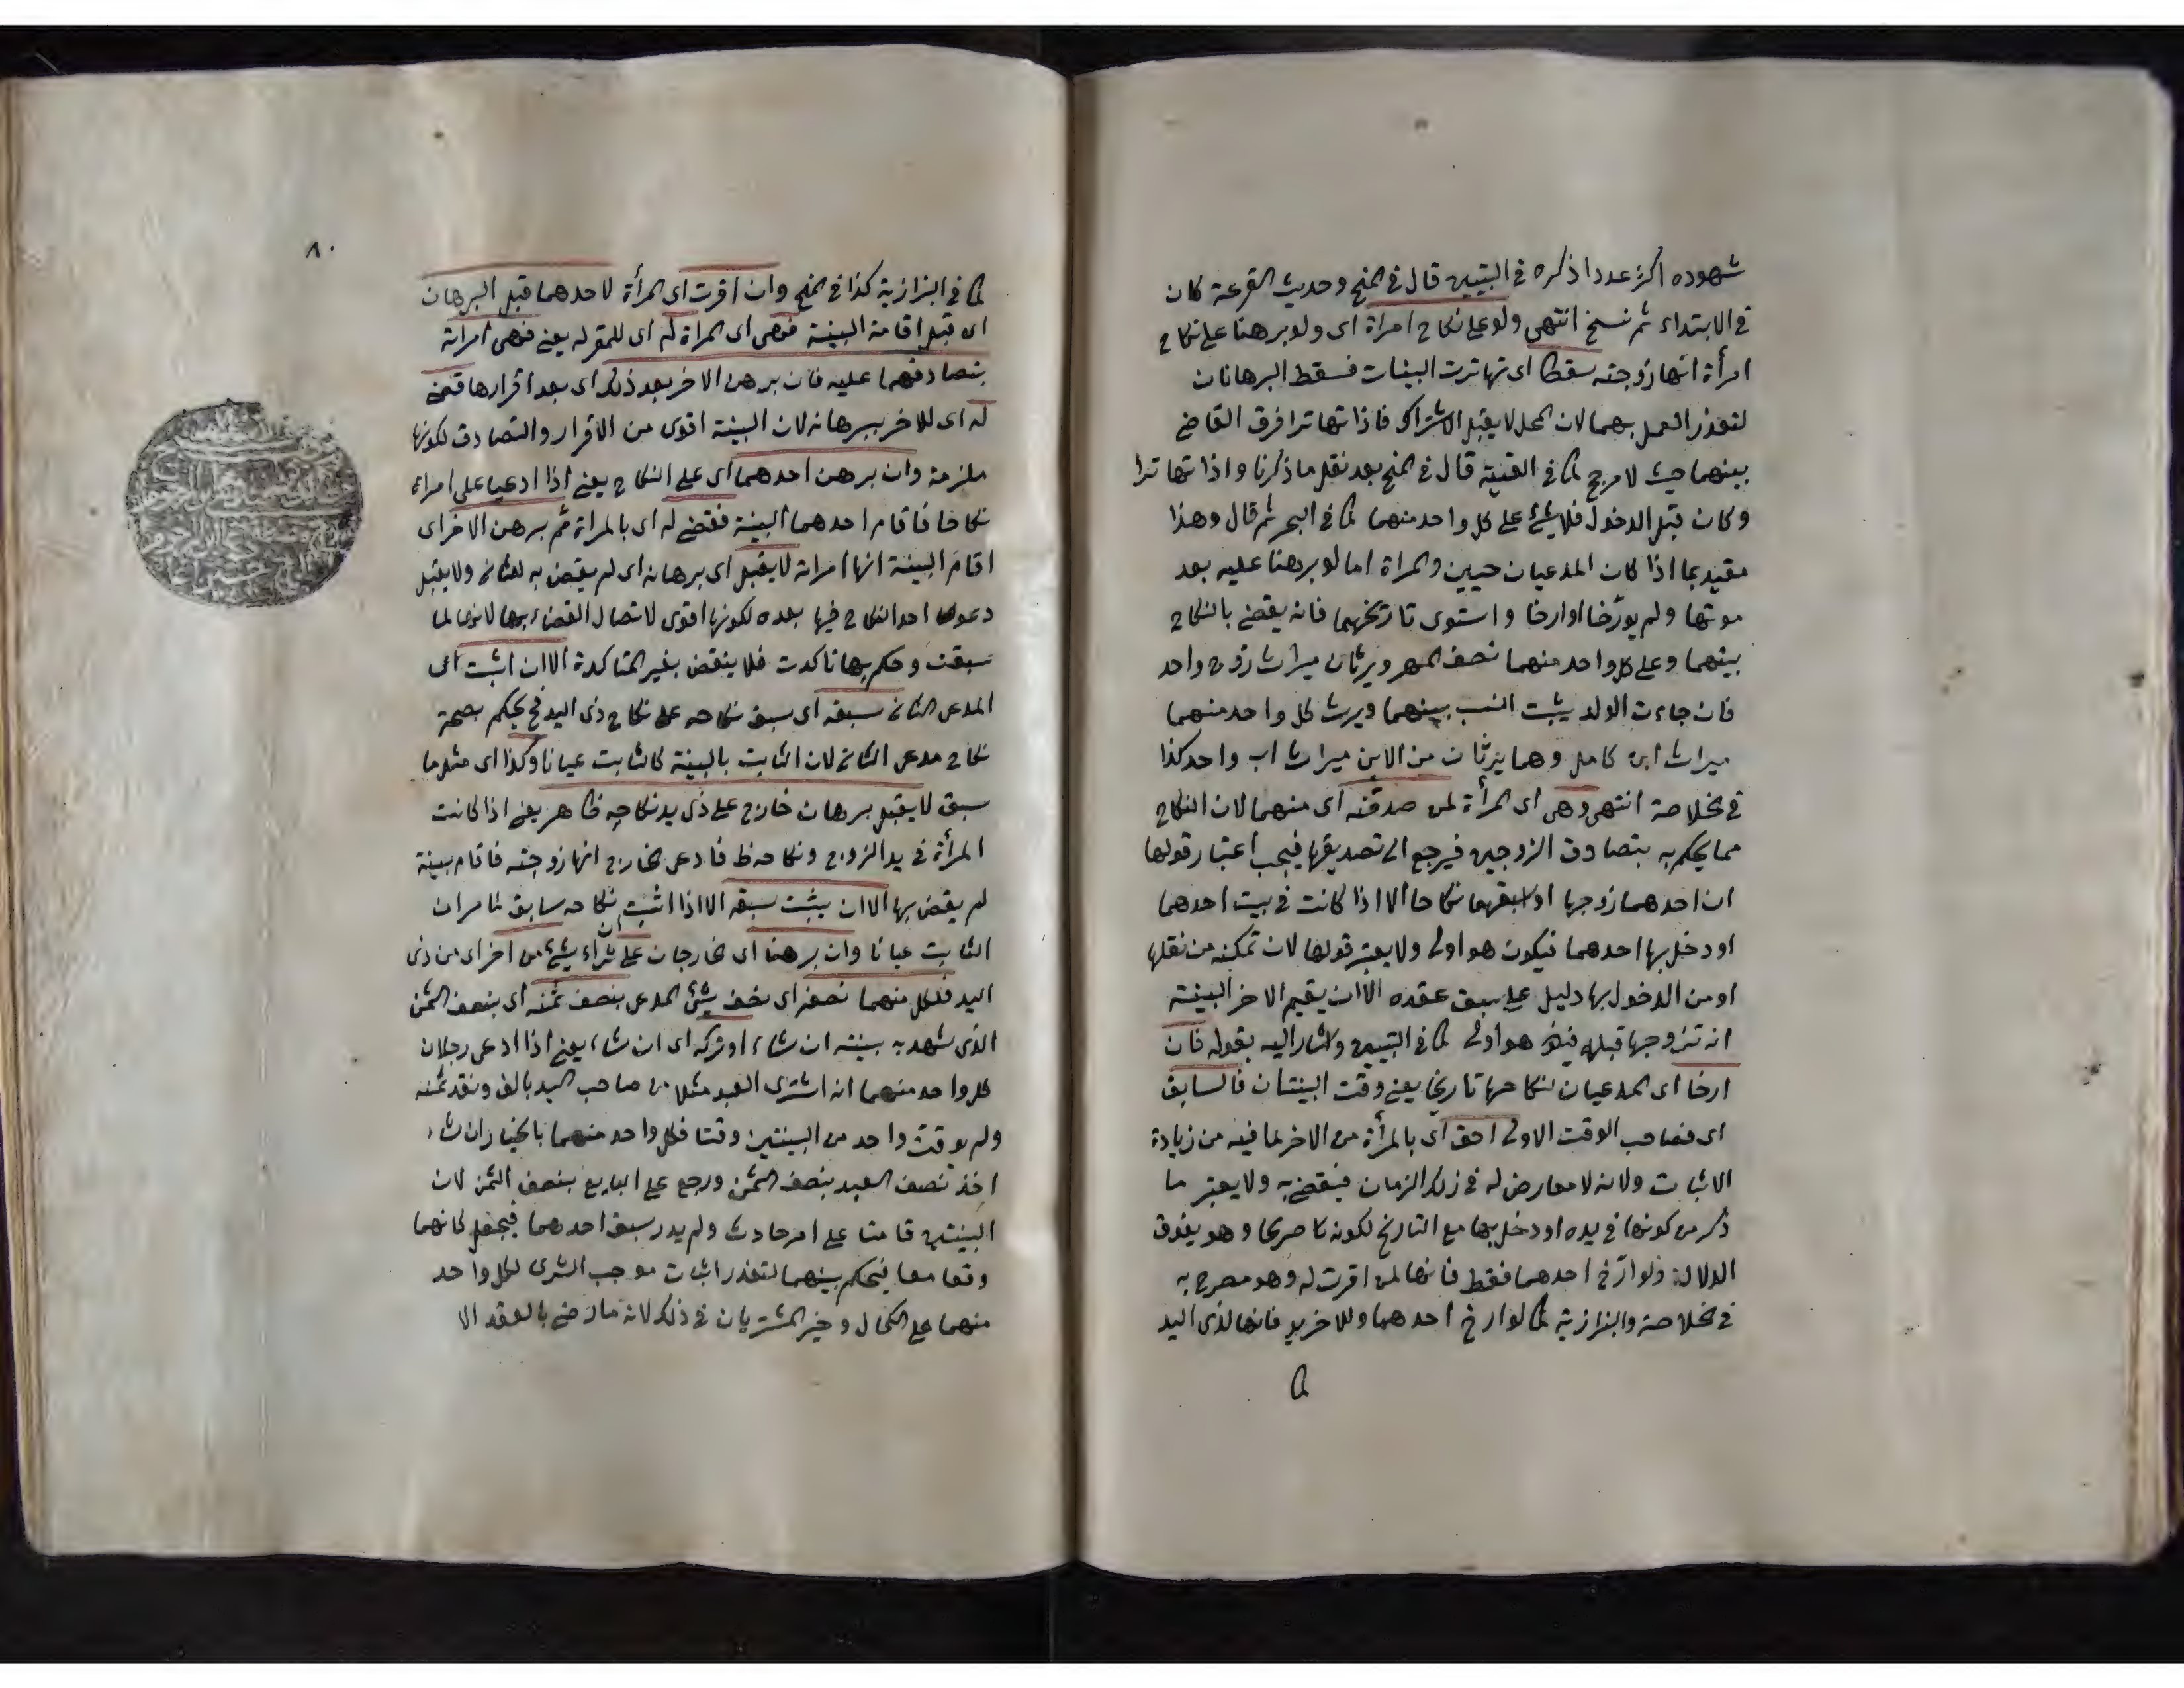 شهوده اكثر عددا ذكره في التبيين قال في المنح وحديث القرعة كان
في الابتداء ثم نسخ انتهى ولو على نكاح امرأة اى ولو برهنا على نكاح
امرأة انها زوجته سقطا اى تهاترت البينات فسقط البرهانان
لتعذر العمل بهما لان المحل لا يقبل الاشتراك فاذا تهاترا فرق القاضي
بينهما حيث لا مرجح كما في القنية قال في المنح بعد نقل ما ذكرنا واذا تهاترا
وكان قبل الدخول فلا شئ على كل واحد منهما كما في البحر ثم قال وهذا
مقيد بما اذا كان المدعيان حيين والمراة اما لو برهنا عليه بعد
موتها ولم يورّخا او ارخا واستوى تاريخهما فانه يقضي بالنكاح
بينهما وعلى كل واحد منهما نصف المهر ويرثان ميراث زوج واحد
فان جاءت الولد يثبت النسب بينهما ويرث كل واحد منهما
ميراث ابن كامل وهما يرثان من الابن ميراث اب واحد كذا
في الخلاصة انتهى وهى اى المرأة لمن صدقته اى منهما لان النكاح
مما يحكم به بتصادق الزوجين فيرجع الى تصديقها فيجب اعتبار قولها
ان احدهما زوجها او اسبقهما نكاحا الا اذا كانت في بيت احدهما
او دخل بها احدهما فيكون هو اولى ولا يعتبر قولها لان تمكنه من نقلها
او من الدخول بها دليل على سبق عقده الا ان يقيم الاخر البينة
انه تزوجها قبله فيكون هو اولى كما في التبيين واشار اليه بقوله فان
ارخا اى المدعيان لنكاحها تاريخا يعني وقت البينتان فالسابق
اى فصاحب الوقت الاولى احق اى بالمرأة من الاخر لما فيه من زيادة
الاثبات ولانه لا معارض له في ذلك الزمان فيقضى به ولا يعتبر ما
ذكر من كونها في يده او دخل بها مع التاريخ لكونه صريحا وهو يفوق
الدلالة ولو ارّخ احدهما فقط فانها لمن اقرت له وهو مصرح به
في الخلاصة والبزازية كما لو ارخ احدهما وللاخر يد فانها لذى اليد
كما
٨٠
كما في البزازية كذا في المنح وان اقرت اى المرأة لاحدهما قبل البرهان
اى قبل اقامة البينة فهى اى المراة له اى للمقر له يعني فهى امراته
بتصادقهما عليه فان برهن الاخر بعد ذلك اى بعد اقرارها قضى
له اى للاخر ببرهانه لان البينة اقوى من الاقرار والتصادق لكونها
ملزمة وان برهن احدهما اى على النكاح يعني اذا ادعيا على امراة
نكاحا فاقام احدهما البينة فقضى له اى بالمراة ثم برهن الاخر اى
اقام البينة انها امراته لا يقبل اى برهانه اى لم يقض به للثاني ولا يقبل
دعوى احد النكاح فيها بعده لكونها اقوى لاتصال القضاء بها لانها لما
سبقت وحكم بها تاكدت فلا ينقض بغير المتاكدة الا ان اثبت اى
المدعى الثاني سبقه اى سبق نكاحه على نكاح ذى اليد فح يحكم بصحة
نكاح مدعى الثاني لان الثابت بالبينة كالثابت عيانا وكذا اى مثل ما
سبق لا يقبل برهان خارج على ذى يد نكاحه ظاهر يعني اذا كانت
المرأة في يد الزوج ونكاحه ظ فادعى خارج انها زوجته فاقام بينة
لم يقض بها الا ان يثبت سبقه الا اذا اثبت ان نكاحه سابق لما مر ان
الثابت عيانا وان برهنا اى خارجان على شراء شئ من اخر اى من ذى
اليد فلكل منهما نصفه اى نصف شئ المدعى بنصف ثمنه اى بنصف الثمن
الذى شهد به بينته ان شاء او تركه اى ان شاء يعني اذا ادعى رجلان
كل واحد منهما انه اشترى العبد مثلا من صاحب اليد بالف ونقد ثمنه
ولم يوقت واحد من البينتين وقتا فكل واحد منهما بالخيار ان شاء
اخذ نصف العبد بنصف الثمن ورجع على البايع بنصف الثمن لان
البينتين قامتا على امر حادث ولم يدر سبق احدهما فيجعل كانهما
وقعا معا فيحكم بينهما لتعذر اثبات موجب الشرى لكل واحد
منهما على الكمال وخير المشتريان في ذلك لانه ما رضى بالعقد الا